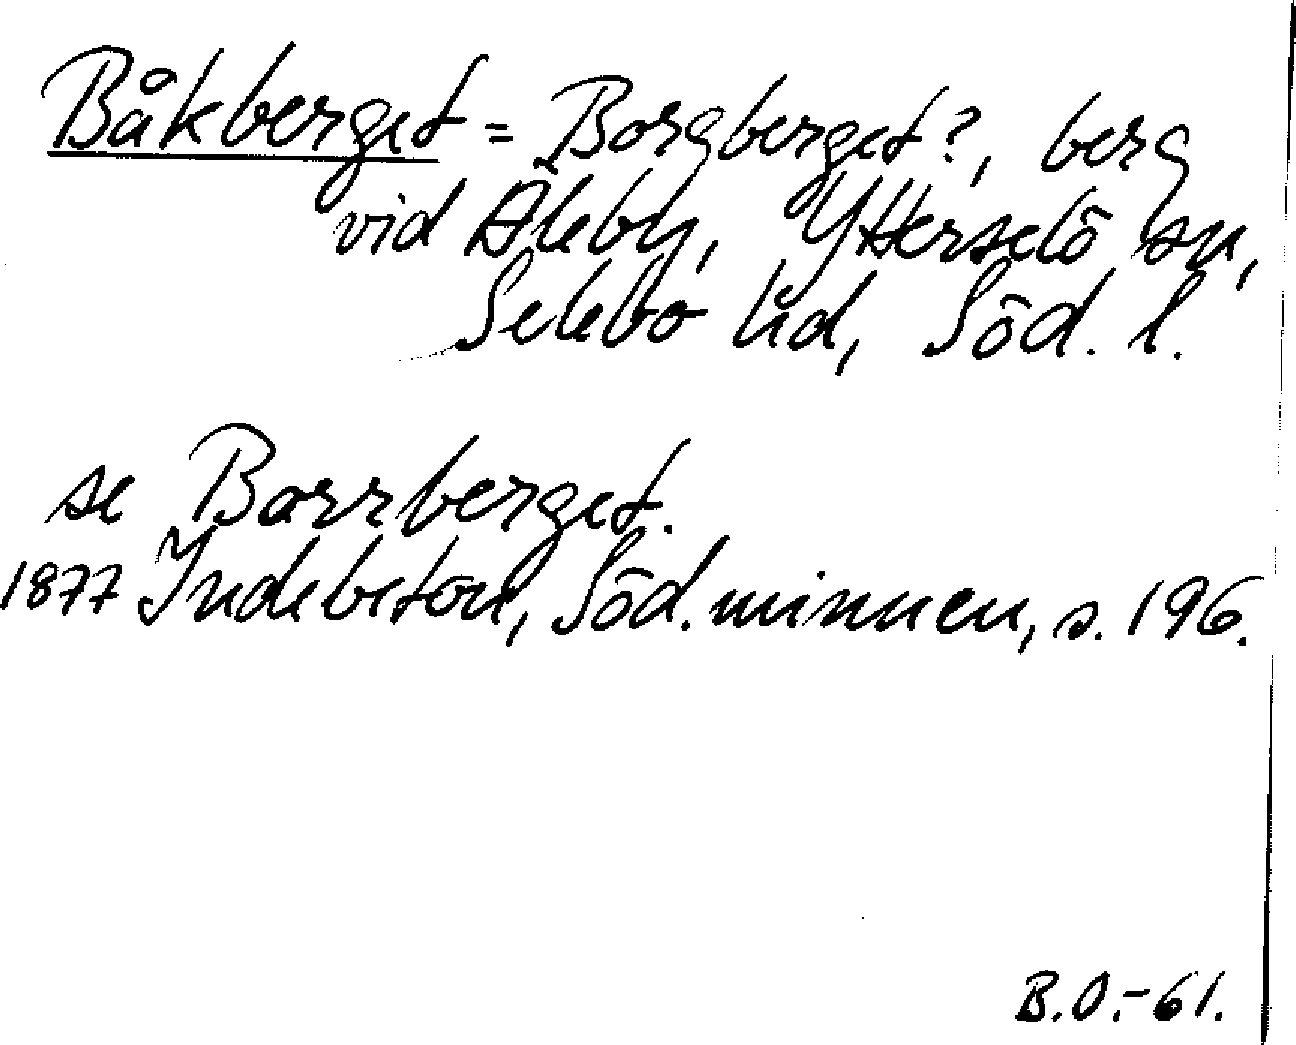 Båkberget = Borgberget?, berg
vid Åleby, Ytterselö sn,
Selebo hd, Söd. l.
se Barrberget.
1877 Indebetou, Söd. minnen, s. 196.
B.O.-61.